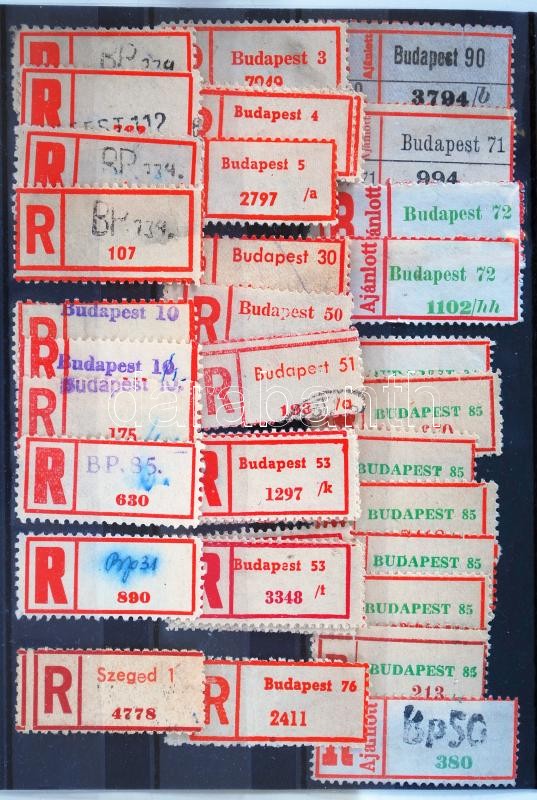 BP 134
R
EST 112
R
BP. 134.
R
BP. 134.
107
R
Budapest 10
R
Budapest 10
Budapest 10.
R
175
R
BP. 85.
630
R
Bp 31
890
R
Szeged 1
4778
Budapest 3
7949
Budapest 4
Budapest 5
2797 /a
Budapest 30
R
Budapest 50
R
Budapest 51
193 /a
Budapest 53
1297 /k
R
Budapest 53
3348 /t
R
Budapest 76
2411
Ajánlott
Budapest 90
3794/b
Ajánlott
Budapest 71
71
994
Ajánlott
Budapest 72
Ajánlott
Budapest 72
1102/hh
BUDAPEST 85
BUDAPEST 85
BUDAPEST 85
BUDAPEST 85
BUDAPEST 85
BUDAPEST 85
213
R
Ajánlott
Bp50
380
darabanth